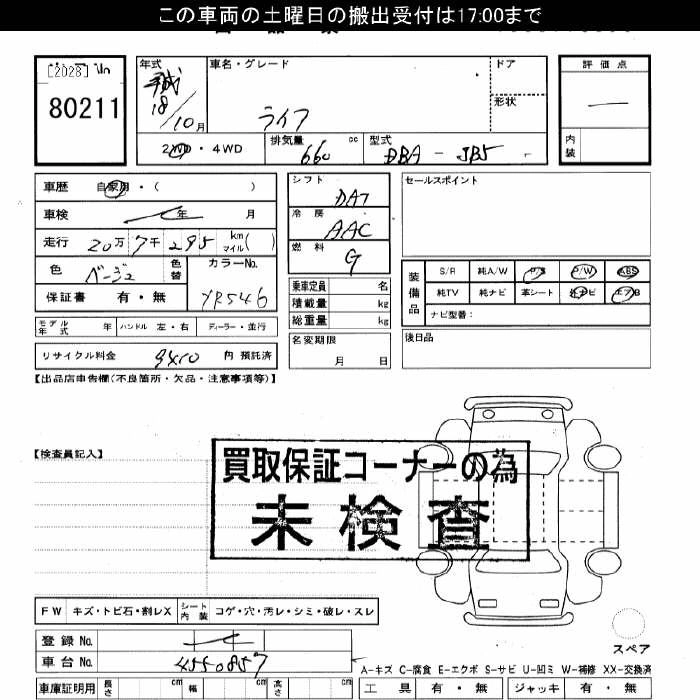 この車両の土曜日の搬出受付は17:00まで
[2028]
80211
年式 平成 18/10月
車名・グレード
ライフ
ドア
形状
評価点
―
内装
2WD・4WD
排気量 660 cc
型式 DBA - JB5
車歴 自家用・( )
車検 年 月
走行 20万7千295 km マイル( )
色 ベージュ 色替
カラーNo. YR546
保証書 有・無
シフト DAT
冷房 AAC
燃料 G
乗車定員 名
積載量 kg
総重量 kg
名変期限 月 日
セールスポイント
装備品
S/R 純A/W P/S P/W ABS
純TV 純ナビ 革シート 社ナビ エアB
ナビ型番:
後日品
モデル年式 年 ハンドル 左・右 ディーラー・並行
リサイクル料金 9410 円 預託済
【出品店申告欄(不良箇所・欠品・注意事項等)】
【検査員記入】
買取保証コーナーの為
未検査
FW キズ・トビ石・割レX シート内装 コゲ・穴・汚レ・シミ・破レ・スレ
登録No.
車台No. 4550857
スペア
A-キズ C-腐食 E-エクボ S-サビ U-凹ミ W-補修 XX-交換済
車庫証明用 長さ cm 幅 cm 高さ cm
工具 有・無 ジャッキ 有・無